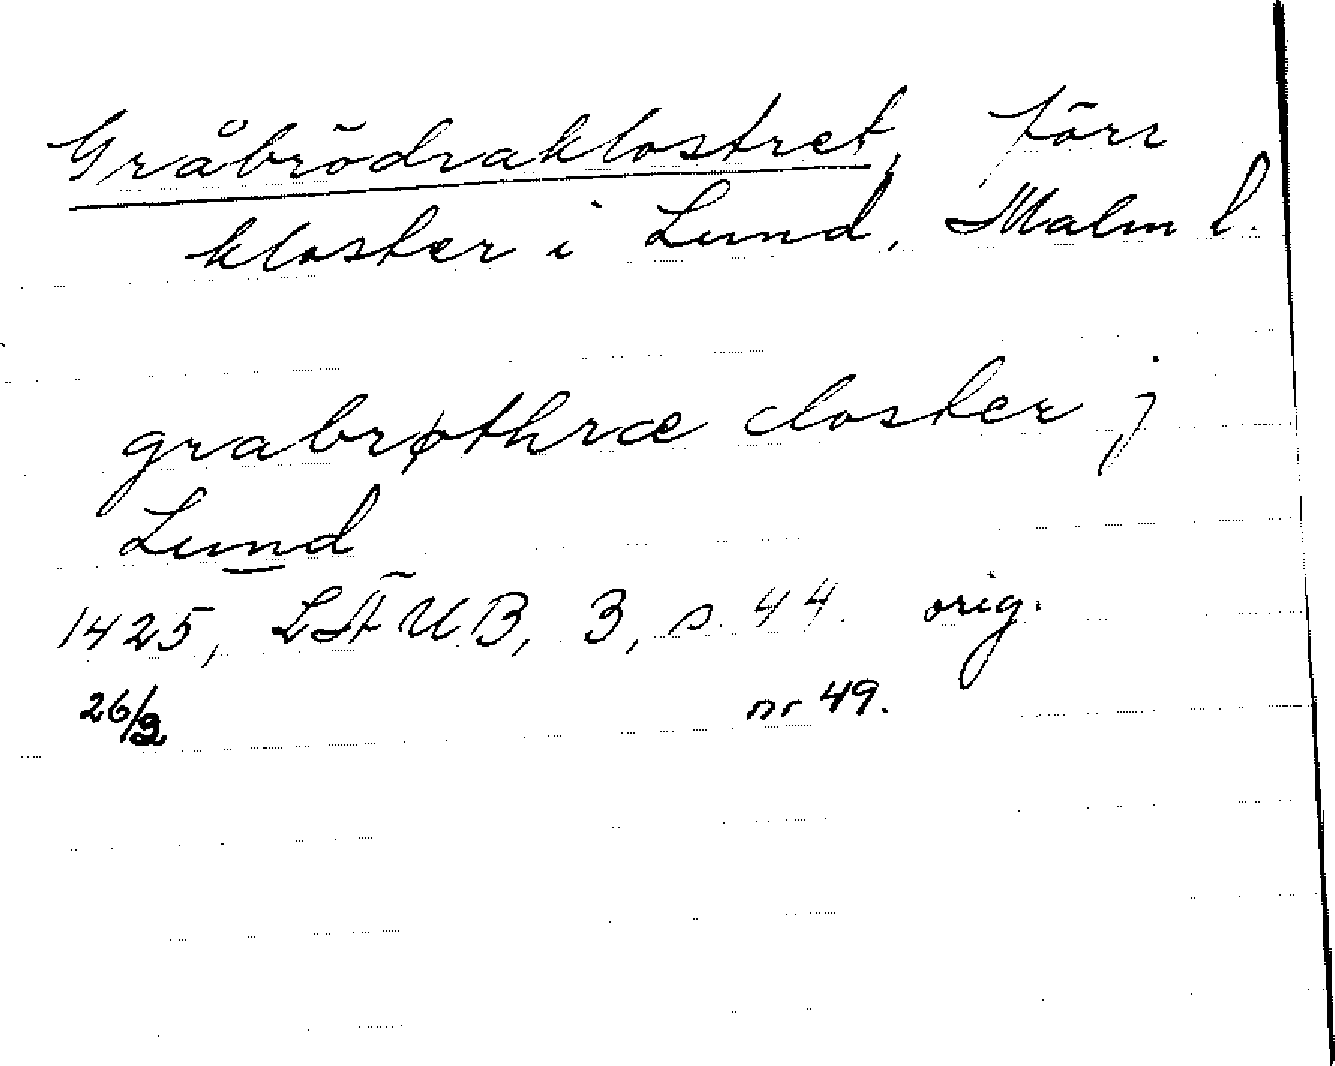 Gråbrödraklostret, förr
kloster i Lund, Malm l.
grabrøthræ closter j
Lund
1425, LÄUB, 3, s. 44. orig.
26/3 nr 49.